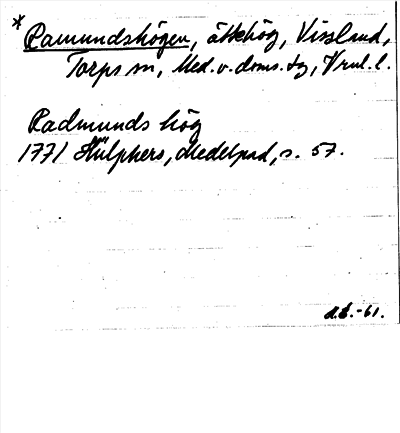 * Ramundshögen, ättehög, Vissland,
Torps sn, Med. v. doms. tg, Vrnl. l.
Radmunds hög
1771 Hülphers, Medelpad, s. 57.
d.b.-61.